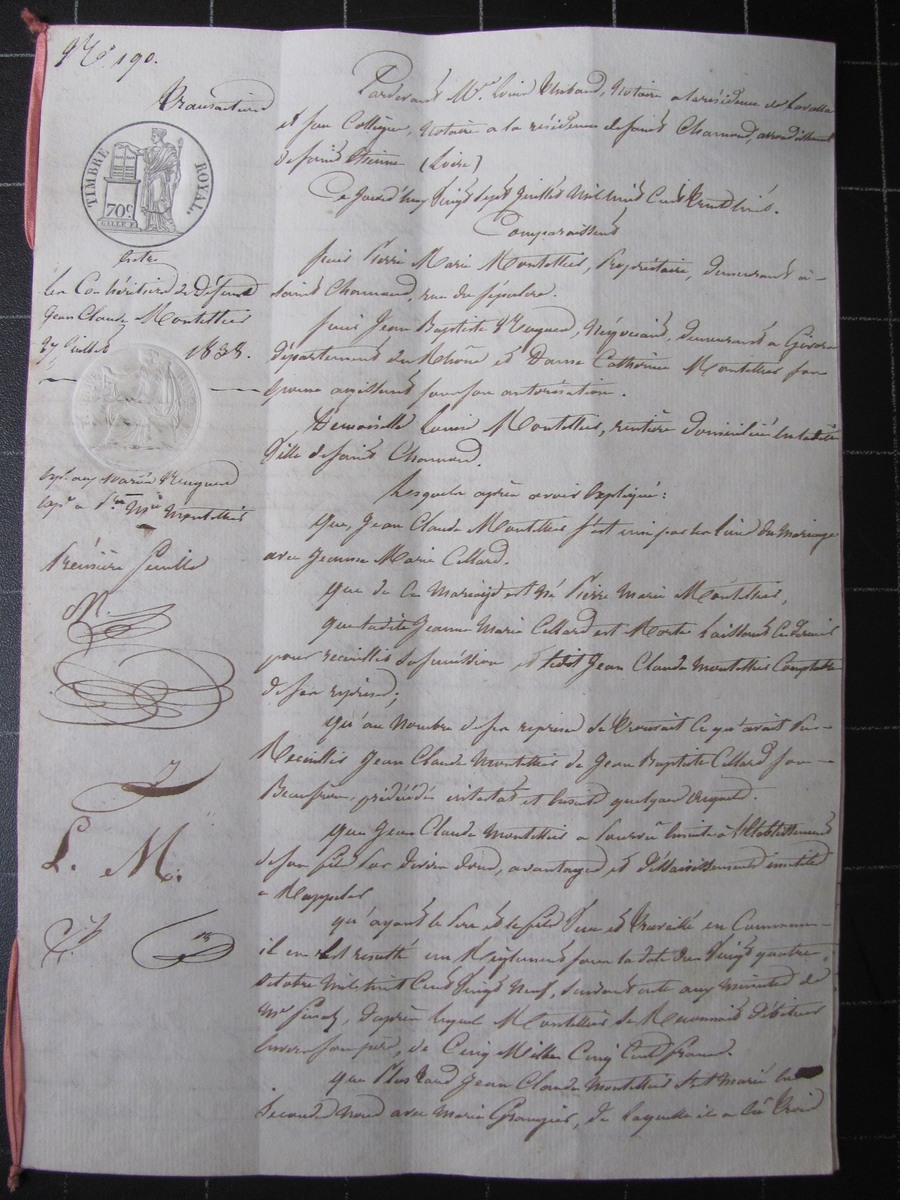 N° 190.
Transaction
TIMBRE ROYAL.
70c.
Entre
les Cohéritiers de défunt
Jean Claude Montellier
27 Juillet 1838.
exp. aux mariés
exp. à Pre. Mie. Montellier
Première feuille
L. M.
Pardevant Me. Louis, Notaire à la résidence de Lavalla
et son Collègue, Notaire à la résidence de Saint Chamond, arrondissement
de Saint Etienne (Loire)
Ce Jourd'huy Vingt Sept Juillet Mil huit Cent Trente huit.
Comparaissent
Sieur Pierre Marie Montellier, Propriétaire, demeurant à
Saint Chamond, rue du Sépulcre.
Sieur Jean Baptiste, Négociant, demeurant à Givors
département du Rhône et Dame Catherine Montellier son
épouse agissant sous son autorisation.
Demoiselle Louise Montellier, rentière domiciliée en ladite
Ville de Saint Chamond.
Lesquels après avoir expliqué :
que, Jean Claude Montellier s'est uni par les liens du Mariage
avec Jeanne Marie Collard.
que de ce Mariage est né Pierre Marie Montellier,
que ladite Jeanne Marie Collard est Morte laissant
pour recueillir sa succession et ledit Jean Claude Montellier Comptable
de ses reprises;
qu'au Nombre de ses reprises se trouvait ce qu'avait
Recueillir Jean Claude Montellier de Jean Baptiste Collard son
Beaufrère, prédécédé intestat et ensuite quelques
que Jean Claude Montellier a ensuite à l'Etablissement
de son fils par divers dons, avantages et dessaisissements inutiles
à Rappeler
qu'ayant le père et le fils Vécu et travaillé en Commun
il en est résulté un Règlement sous la date du Vingt quatre
Octobre Mil huit Cent Vingt Neuf, suivant acte aux minutes de
Me, d'après lequel Montellier Se Reconnait débiteur
Envers son père, de Cinq Mille Cinq Cent francs.
que Plus tard Jean Claude Montellier S'est Marié en
Seconde Noces avec Marie Grangier, de laquelle il a eu Trois